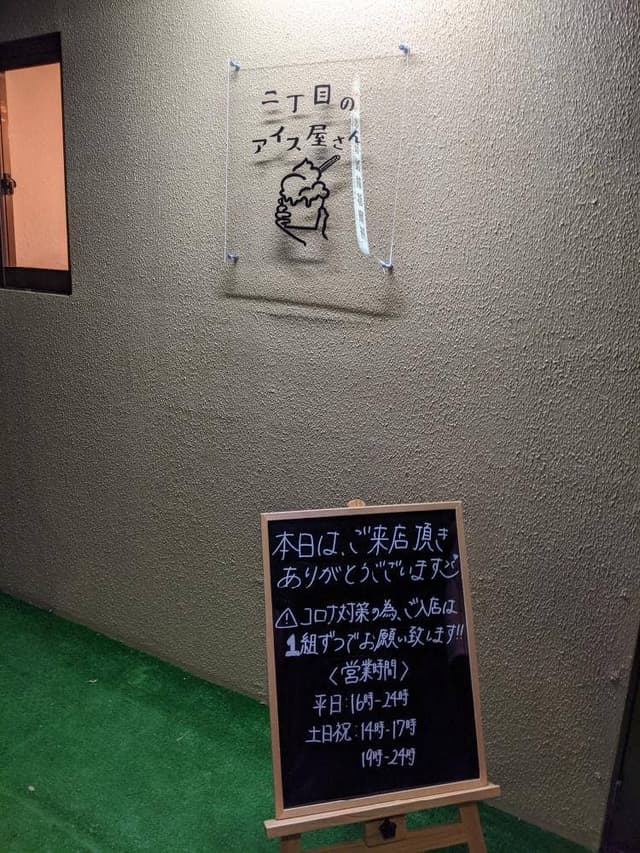 二丁目の
アイス屋さん
本日は、ご来店頂き
ありがとうございます
⚠コロナ対策の為、ご入店は
1組ずつでお願い致します!!
〈営業時間〉
平日:16時-24時
土日祝:14時-17時
19時-24時